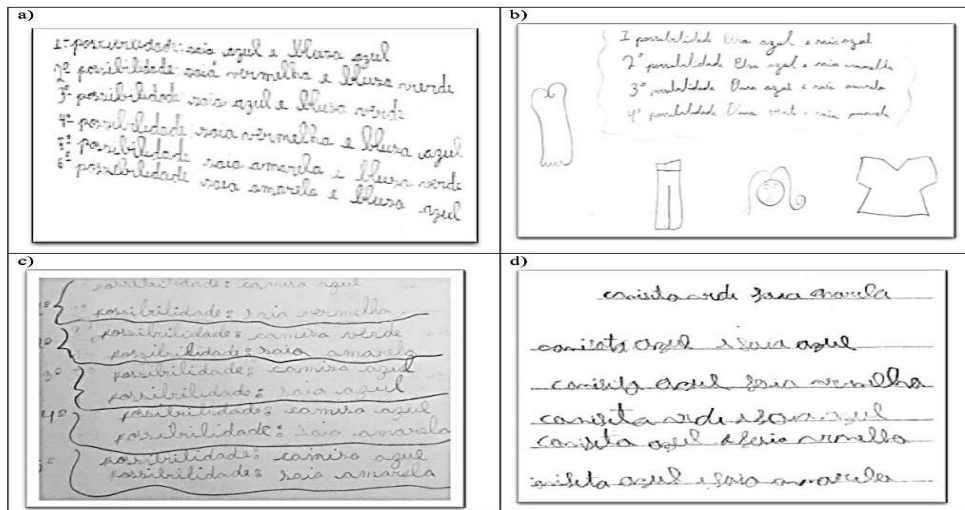 a)
1ª possibilidade: saia azul e blusa azul
2ª possibilidade: saia vermelha e blusa verde
3ª possibilidade: saia azul e blusa verde
4ª possibilidade saia vermelha e blusa azul
5ª possibilidade saia amarela e blusa verde
6ª possibilidade saia amarela e blusa azul
b)
1 possibilidade azul e saia azul
2ª possibilidade azul e saia
3ª possibilidade azul e saia amarela
4ª possibilidade e saia amarela
c)
possibilidade: camisa azul
possibilidade: saia vermelha
possibilidade: camisa verde
possibilidade: saia amarela
3º possibilidade: camisa azul
possibilidade: saia azul
4º possibilidade: camisa azul
possibilidade: saia amarela
possibilidade: camisa azul
possibilidade: saia amarela
d)
saia amarela
camiseta azul e saia azul
camiseta azul saia
camiseta azul
camiseta azul e saia
azul e saia amarela